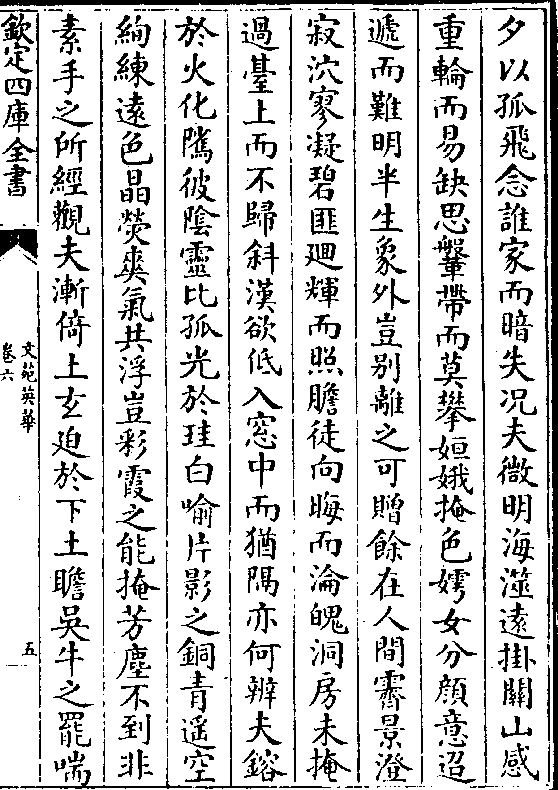 夕以孤飛念誰家而暗失况夫微明海澨逺掛關山感
重輪而易缺思鞶帶而莫攀姮娥掩色婺女分顔意迢
遞而難明半生象外豈别離之可贈餘在人間霽景澄
寂泬寥凝碧匪廻輝而照膽徒向晦而淪魄洞房未掩
過臺上而不歸斜漢欲低入窓中而猶隔亦何辨夫鎔
於火化隲彼陰靈比孤光於珪白喻片影之銅青遥空
絢練逺色晶熒爽氣共浮豈彩霞之能掩芳塵不到非
素手之所經觀夫漸倚上玄迫於下土瞻吳牛之罷喘
欽定四庫全書
文苑英華
卷六
五